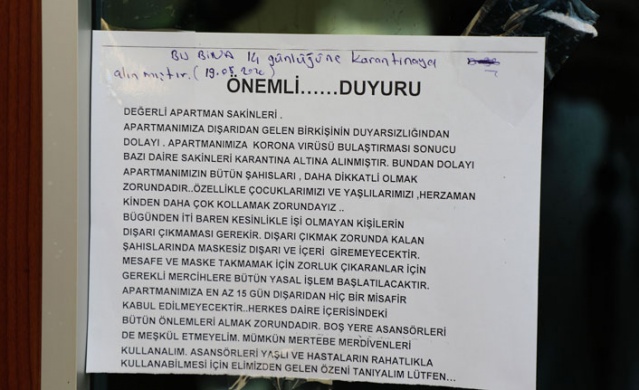 BU BİNA 14 günlüğüne karantinaya
alınmıştır. (19.05.2020)
ÖNEMLİ......DUYURU
DEĞERLİ APARTMAN SAKİNLERİ .
APARTMANIMIZA DIŞARIDAN GELEN BİRKİŞİNİN DUYARSIZLIĞINDAN
DOLAYI . APARTMANIMIZA KORONA VİRÜSÜ BULAŞTIRMASI SONUCU
BAZI DAİRE SAKİNLERİ KARANTİNA ALTINA ALINMIŞTIR. BUNDAN DOLAYI
APARTMANIMIZIN BÜTÜN ŞAHISLARI , DAHA DİKKATLİ OLMAK
ZORUNDADIR..ÖZELLİKLE ÇOCUKLARIMIZI VE YAŞLILARIMIZI ,HERZAMAN
KİNDEN DAHA ÇOK KOLLAMAK ZORUNDAYIZ ..
BUGÜNDEN İTİ BAREN KESİNLİKLE İŞİ OLMAYAN KİŞİLERİN
DIŞARI ÇIKMAMASI GEREKİR. DIŞARI ÇIKMAK ZORUNDA KALAN
ŞAHISLARINDA MASKESİZ DIŞARI VE İÇERİ GİREMEYECEKTİR.
MESAFE VE MASKE TAKMAMAK İÇİN ZORLUK ÇIKARANLAR İÇİN
GEREKLİ MERCİHLERE BÜTÜN YASAL İŞLEM BAŞLATILACAKTIR.
APARTMANIMIZA EN AZ 15 GÜN DIŞARIDAN HİÇ BİR MİSAFİR
KABUL EDİLMEYECEKTİR..HERKES DAİRE İÇERİSİNDEKİ
BÜTÜN ÖNLEMLERİ ALMAK ZORUNDADIR. BOŞ YERE ASANSÖRLERİ
DE MEŞKÜL ETMEYELİM. MÜMKÜN MERTEBE MERDİVENLERİ
KULLANALIM. ASANSÖRLERİ YAŞLI VE HASTALARIN RAHATLIKLA
KULLANABİLMESİ İÇİN ELİMİZDEN GELEN ÖZENİ TANIYALIM LÜTFEN...